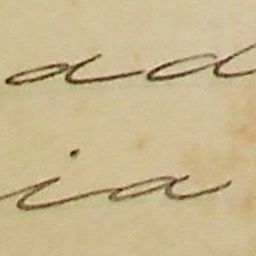 ad
ia